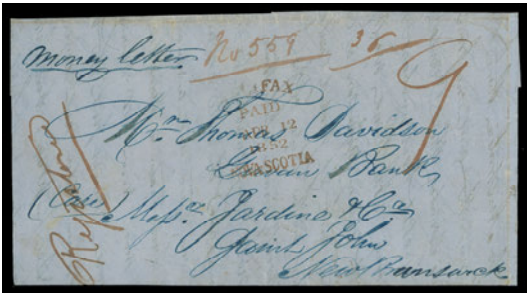 Money letter No 559 36
9
FAX
PAID
APR 12
1852
NOVA SCOTIA
Mr Thomas Davidson
Green Bank
(Care) Messrs Jardine & Co
Saint John
New Brunswick